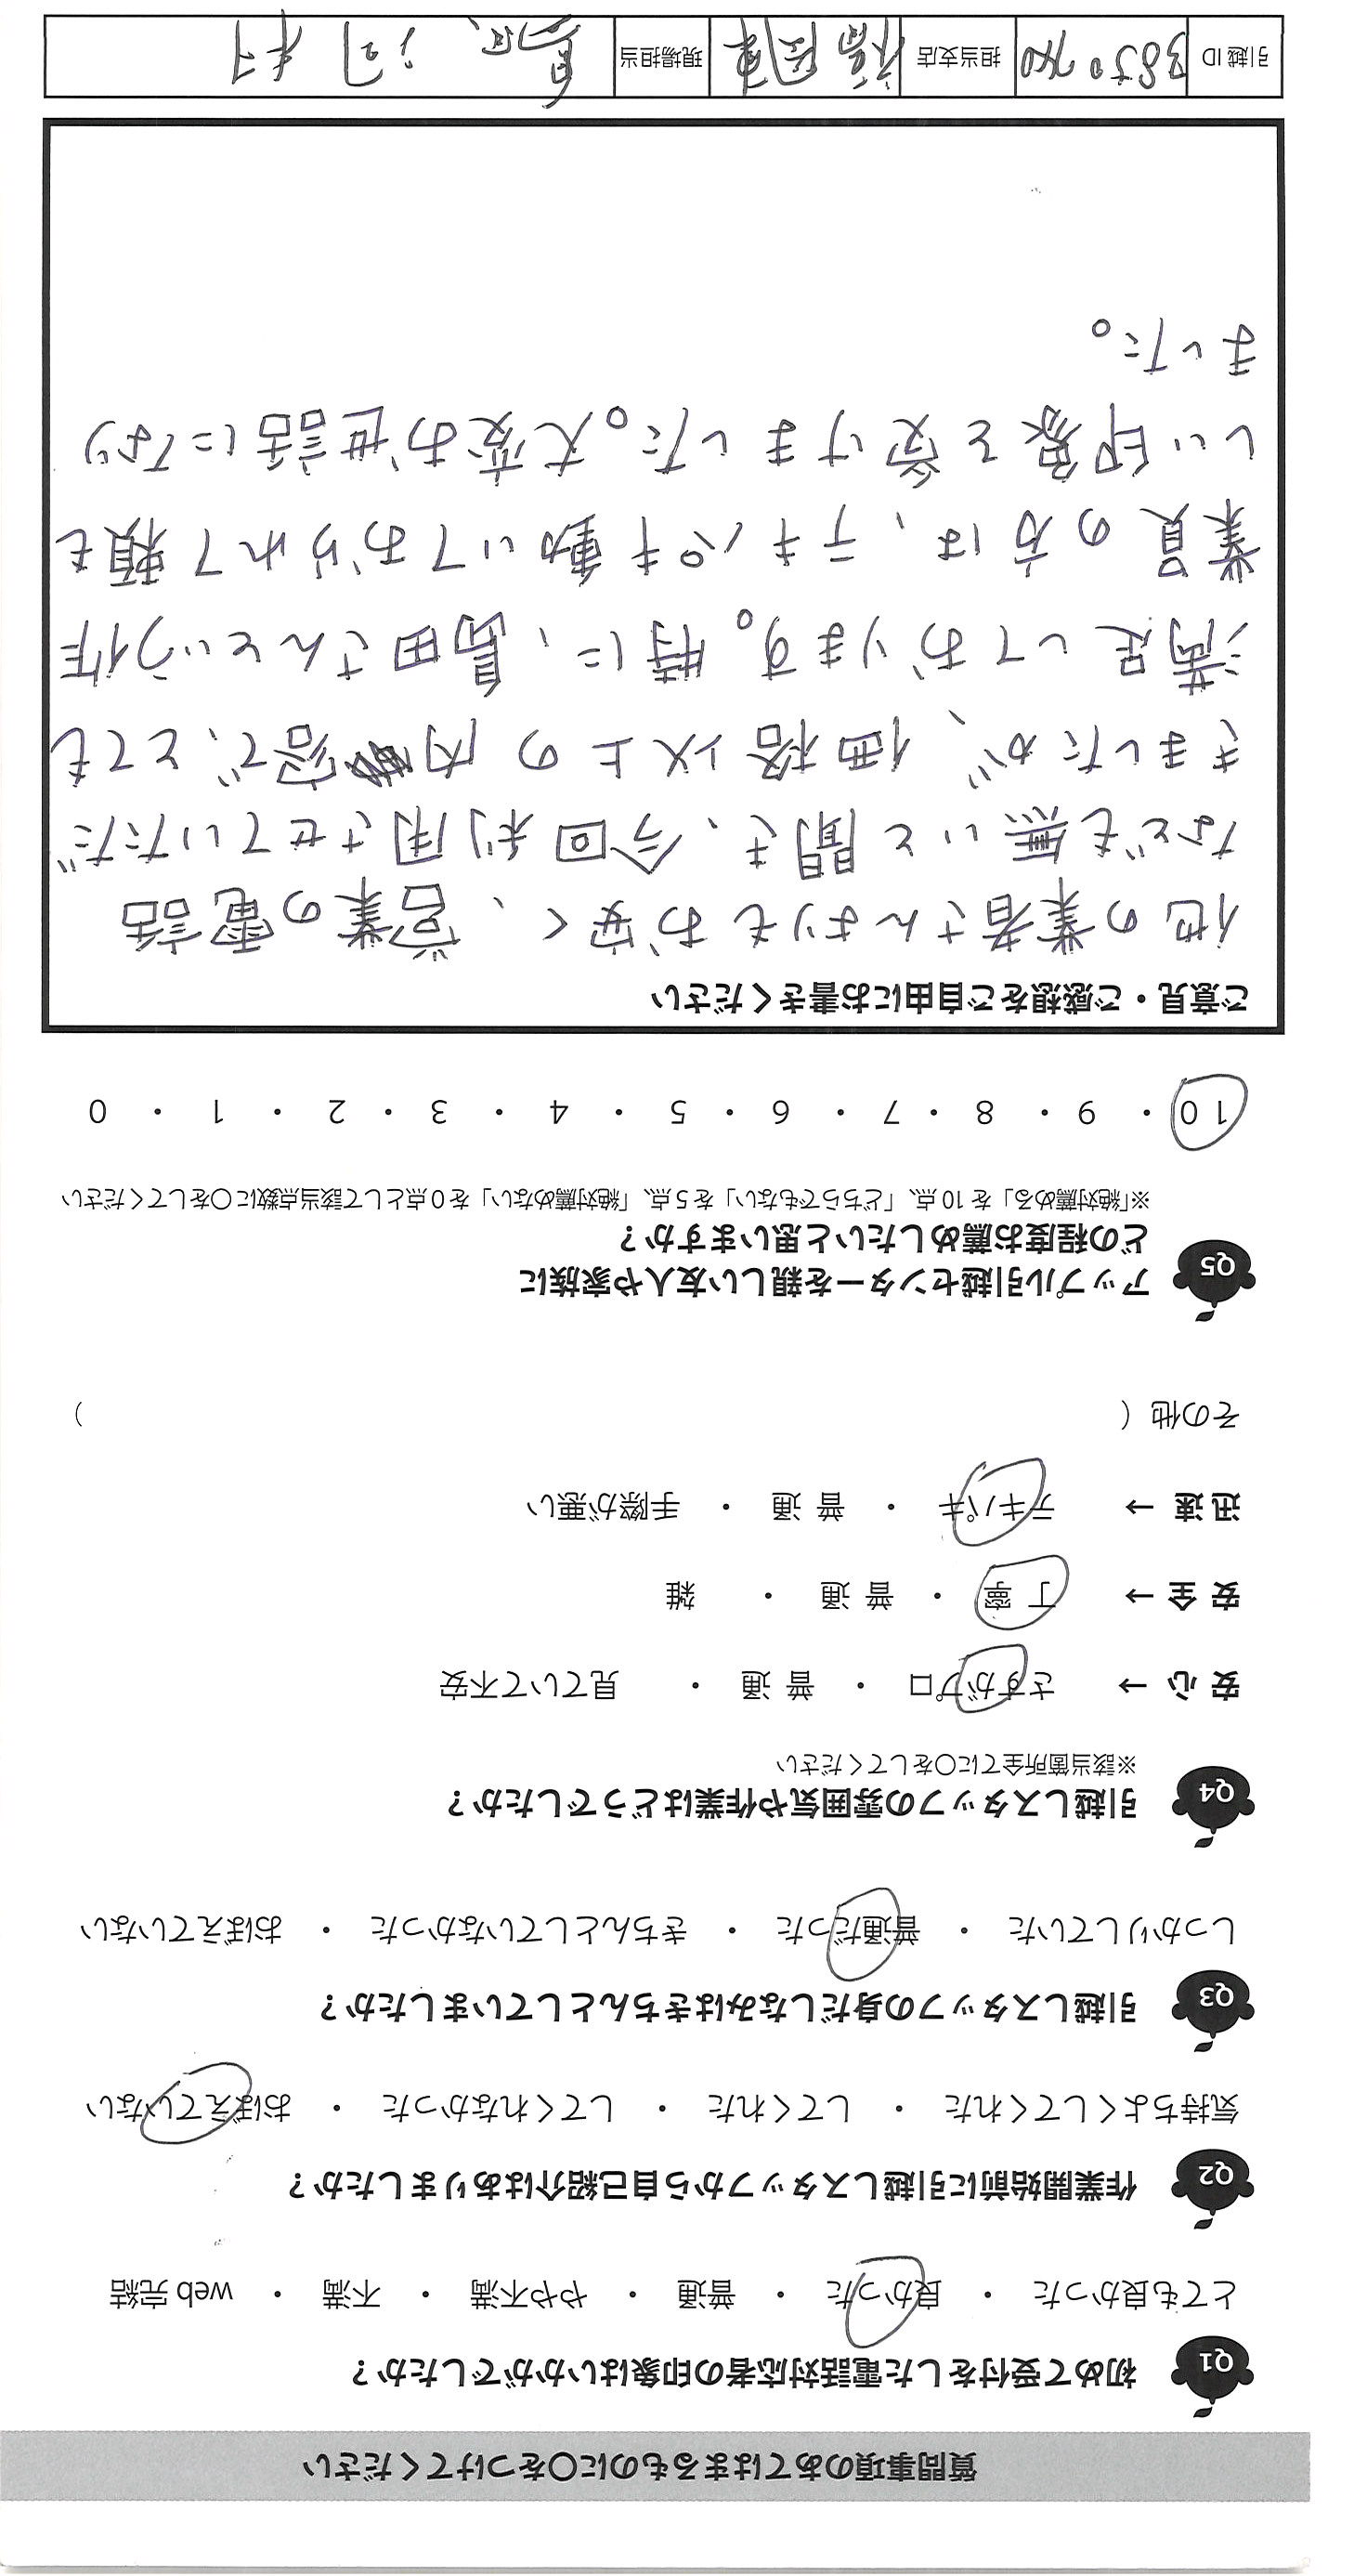 質問事項のあてはまるものに○をつけてください
Q1 初めて受付をした電話対応者の印象はいかがでしたか？
とても良かった ・ 良かった ・ 普通 ・ やや不満 ・ 不満 ・ web 完結
Q2 作業開始前に引越しスタッフから自己紹介はありましたか？
気持ちよくしてくれた ・ してくれた ・ してくれなかった ・ おぼえていない
Q3 引越しスタッフの身だしなみはきちんとしていましたか？
しっかりしていた ・ 普通だった ・ きちんとしていなかった ・ おぼえていない
Q4 引越しスタッフの雰囲気や作業はどうでしたか？
※該当箇所全てに○をしてください
安 心 → さすがプロ ・ 普 通 ・ 見ていて不安
安 全 → 丁 寧 ・ 普 通 ・ 雑
迅 速 → テキパキ ・ 普 通 ・ 手際が悪い
その他（ ）
Q5 アップル引越センターを親しい友人や家族に
どの程度お薦めしたいと思いますか？
※「絶対薦める」を 10 点、「どちらでもない」を 5 点、「絶対薦めない」を 0 点として該当点数に○をしてください
10 ・ 9 ・ 8 ・ 7 ・ 6 ・ 5 ・ 4 ・ 3 ・ 2 ・ 1 ・ 0
ご意見・ご感想をご自由にお書きください
他の業者さんよりもお安く、営業の電話
なども無いと聞き、今回利用させていただ
きましたが、価格以上の内容で、とても
満足しております。特に、島田さんという作
業員の方は、テキパキ動いておられて頼も
しい印象を受けました。大変お世話になり
ました。
引越 ID 担当支店 福岡東 現場担当